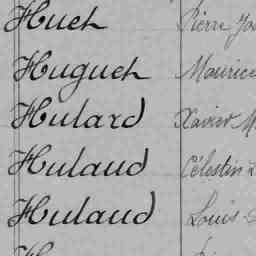 Huet Pierre
Huguet Maurice
Hulard Xavier
Hulaud Célestin
Hulaud Louis